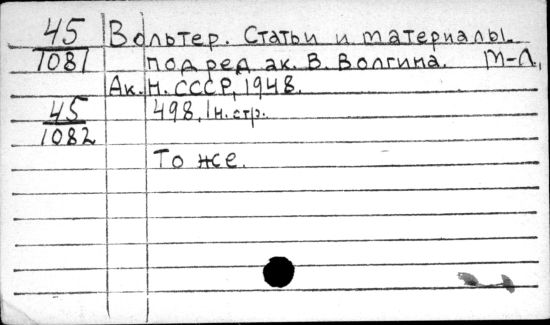 45 Вольтер. Статьи и материалы.
1081 под ред. ак. В. Волгина. М-Л,
Ак. Н. СССР, 1948.
45 498, 1 н. стр.
1082
То же.